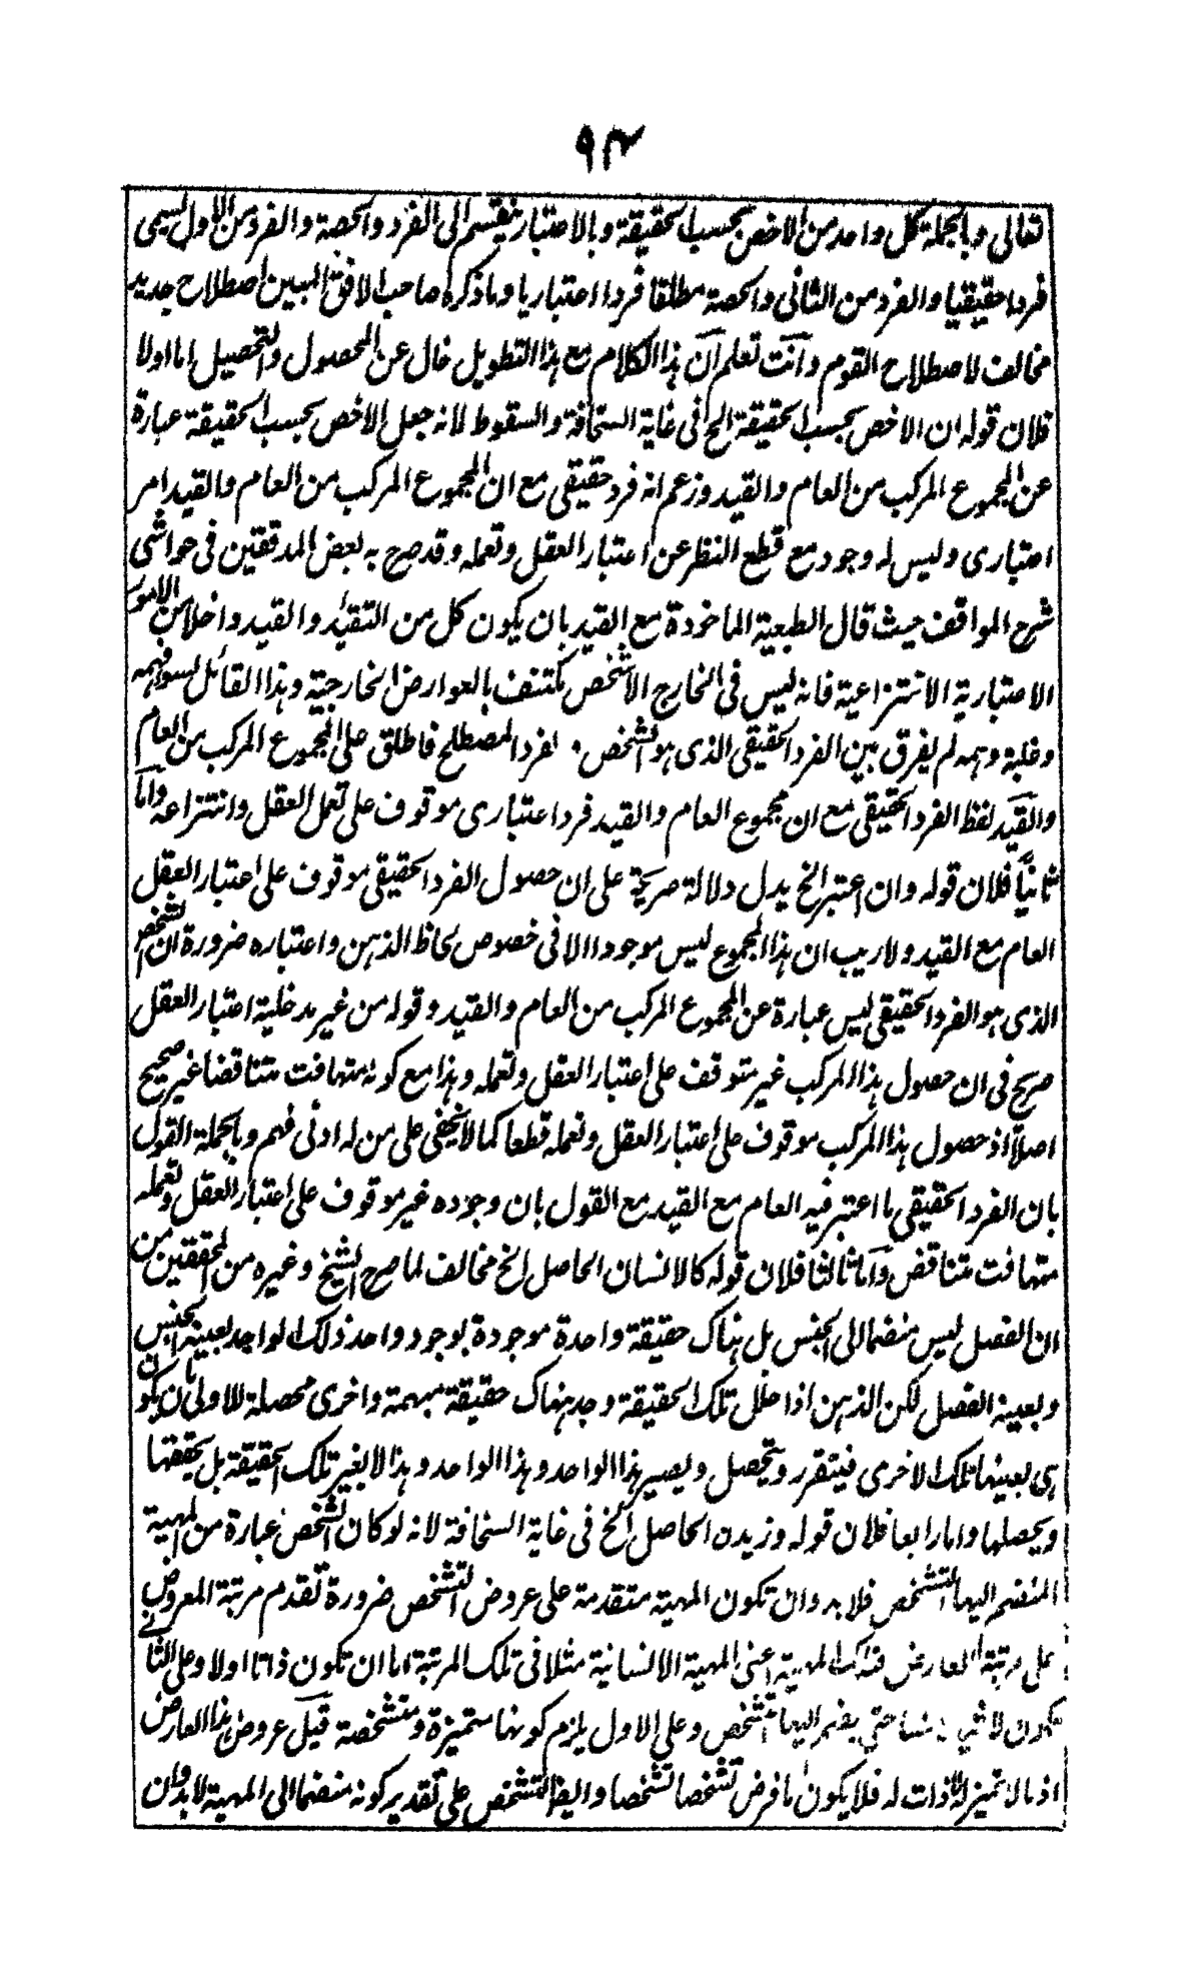 ٩٣
تعالى وبالجملة كل واحد من الاخص بحسب الحقيقة وبالاعتبار ينقسم الى الفرد والحصة والفرد من الاول يسمى
فردا حقيقيا والفرد من الثانى والحصة مطلقا فردا اعتباريا وما ذكره صاحب الافق المبين اصطلاح جديد
مخالف لاصطلاح القوم وانت تعلم ان هذا الكلام مع هذا التطويل خال عن المحصول والتحصيل اما اولا
فلان قوله ان الاخص بحسب الحقيقة الخ فى غاية السخافة والسقوط لانه جعل الاخص بحسب الحقيقة عبارة
عن المجموع المركب من العام والقيد وزعم انه فرد حقيقى مع ان المجموع المركب من العام والقيد امر
اعتبارى وليس له وجود مع قطع النظر عن اعتبار العقل وتعمله وقد صرح به بعض المدققين فى حواشى
شرح المواقف حيث قال الطبعية الماخوذة مع القيد بان يكون كل من التقيد والقيد داخلا من الامور
الاعتبارية الانتزاعية فانه ليس فى الخارج الا شخص مكتنف بالعوارض الخارجية وهذا القائل لسوء فهمه
وغلبة وهمه لم يفرق بين الفرد الحقيقى الذى هو الشخص و لفرد المصطلح فاطلق على المجموع المركب من العام
والقيد لفظ الفرد الحقيقى مع ان مجموع العام والقيد فرد اعتبارى موقوف على تعمل العقل وانتزاعه واما
ثانيا فلان قوله وان اعتبر الخ يدل دلالة صريحة على ان حصول الفرد الحقيقى موقوف على اعتبار العقل
العام مع القيد ولا ريب ان هذا المجموع ليس موجودا الا فى خصوص لحاظ الذهن واعتباره ضرورة ان الشخص
الذى هو الفرد الحقيقى ليس عبارة عن المجموع المركب من العام والقيد وقوله من غير مدخلية اعتبار العقل
صريح فى ان حصول هذا المركب غير متوقف على اعتبار العقل وتعمله وهذا مع كونه متهافت متناقضا غير صحيح
اصلا اذ حصول هذا المركب موقوف على اعتبار العقل وتعمله قطعا كما لا يخفى على من له ادنى فهم وبالجملة القول
بان الفرد الحقيقى ما اعتبر فيه العام مع القيد مع القول بان وجوده غير موقوف على اعتبار العقل وتعمله
متهافت متناقض واما ثالثا فلان قوله كالانسان الحاصل الخ مخالف لما صرح الشيخ وغيره من المحققين من
ان الفصل ليس منضما الى الجنس بل هناك حقيقة واحدة موجودة بوجود واحد ذلك الواحد بعينه الجنس
وبعينه الفصل لكن الذهن اذا حلل تلك الحقيقة وجد هناك حقيقة مبهمة واخرى محصلة للاولى بان يكون تلك
هى بعينها تلك الاخرى فيتقرر ويتحصل ويصير هذا الواحد وهذا الواحد وهذا لا يغير تلك الحقيقة بل يحققها
ويحصلها واما رابعا فلان قوله وزيد ن الحاصل الخ فى غاية السخافة لانه لو كان الشخص عبارة من المهية
المنضم اليها التشخص فلا بد وان تكون المهية متقدمة على عروض التشخص ضرورة تقدم مرتبة المعروض
على مرتبة العارض فتلك المهية اعنى المهية الانسانية مثلا فى تلك المرتبة اما ان تكون ذاتا اولا وعلى الثانى
يكون لا شيئا حتى ينضم اليها تشخص وعلى الاول يلزم كونها متميزة ومتشخصة قبل عروض هذا العارض
اذ ما لا تميز له لا ذات له فلا يكون ما فرض تشخصا تشخصا وايضا التشخص على تقدير كونه منضما الى المهية لا بد وان